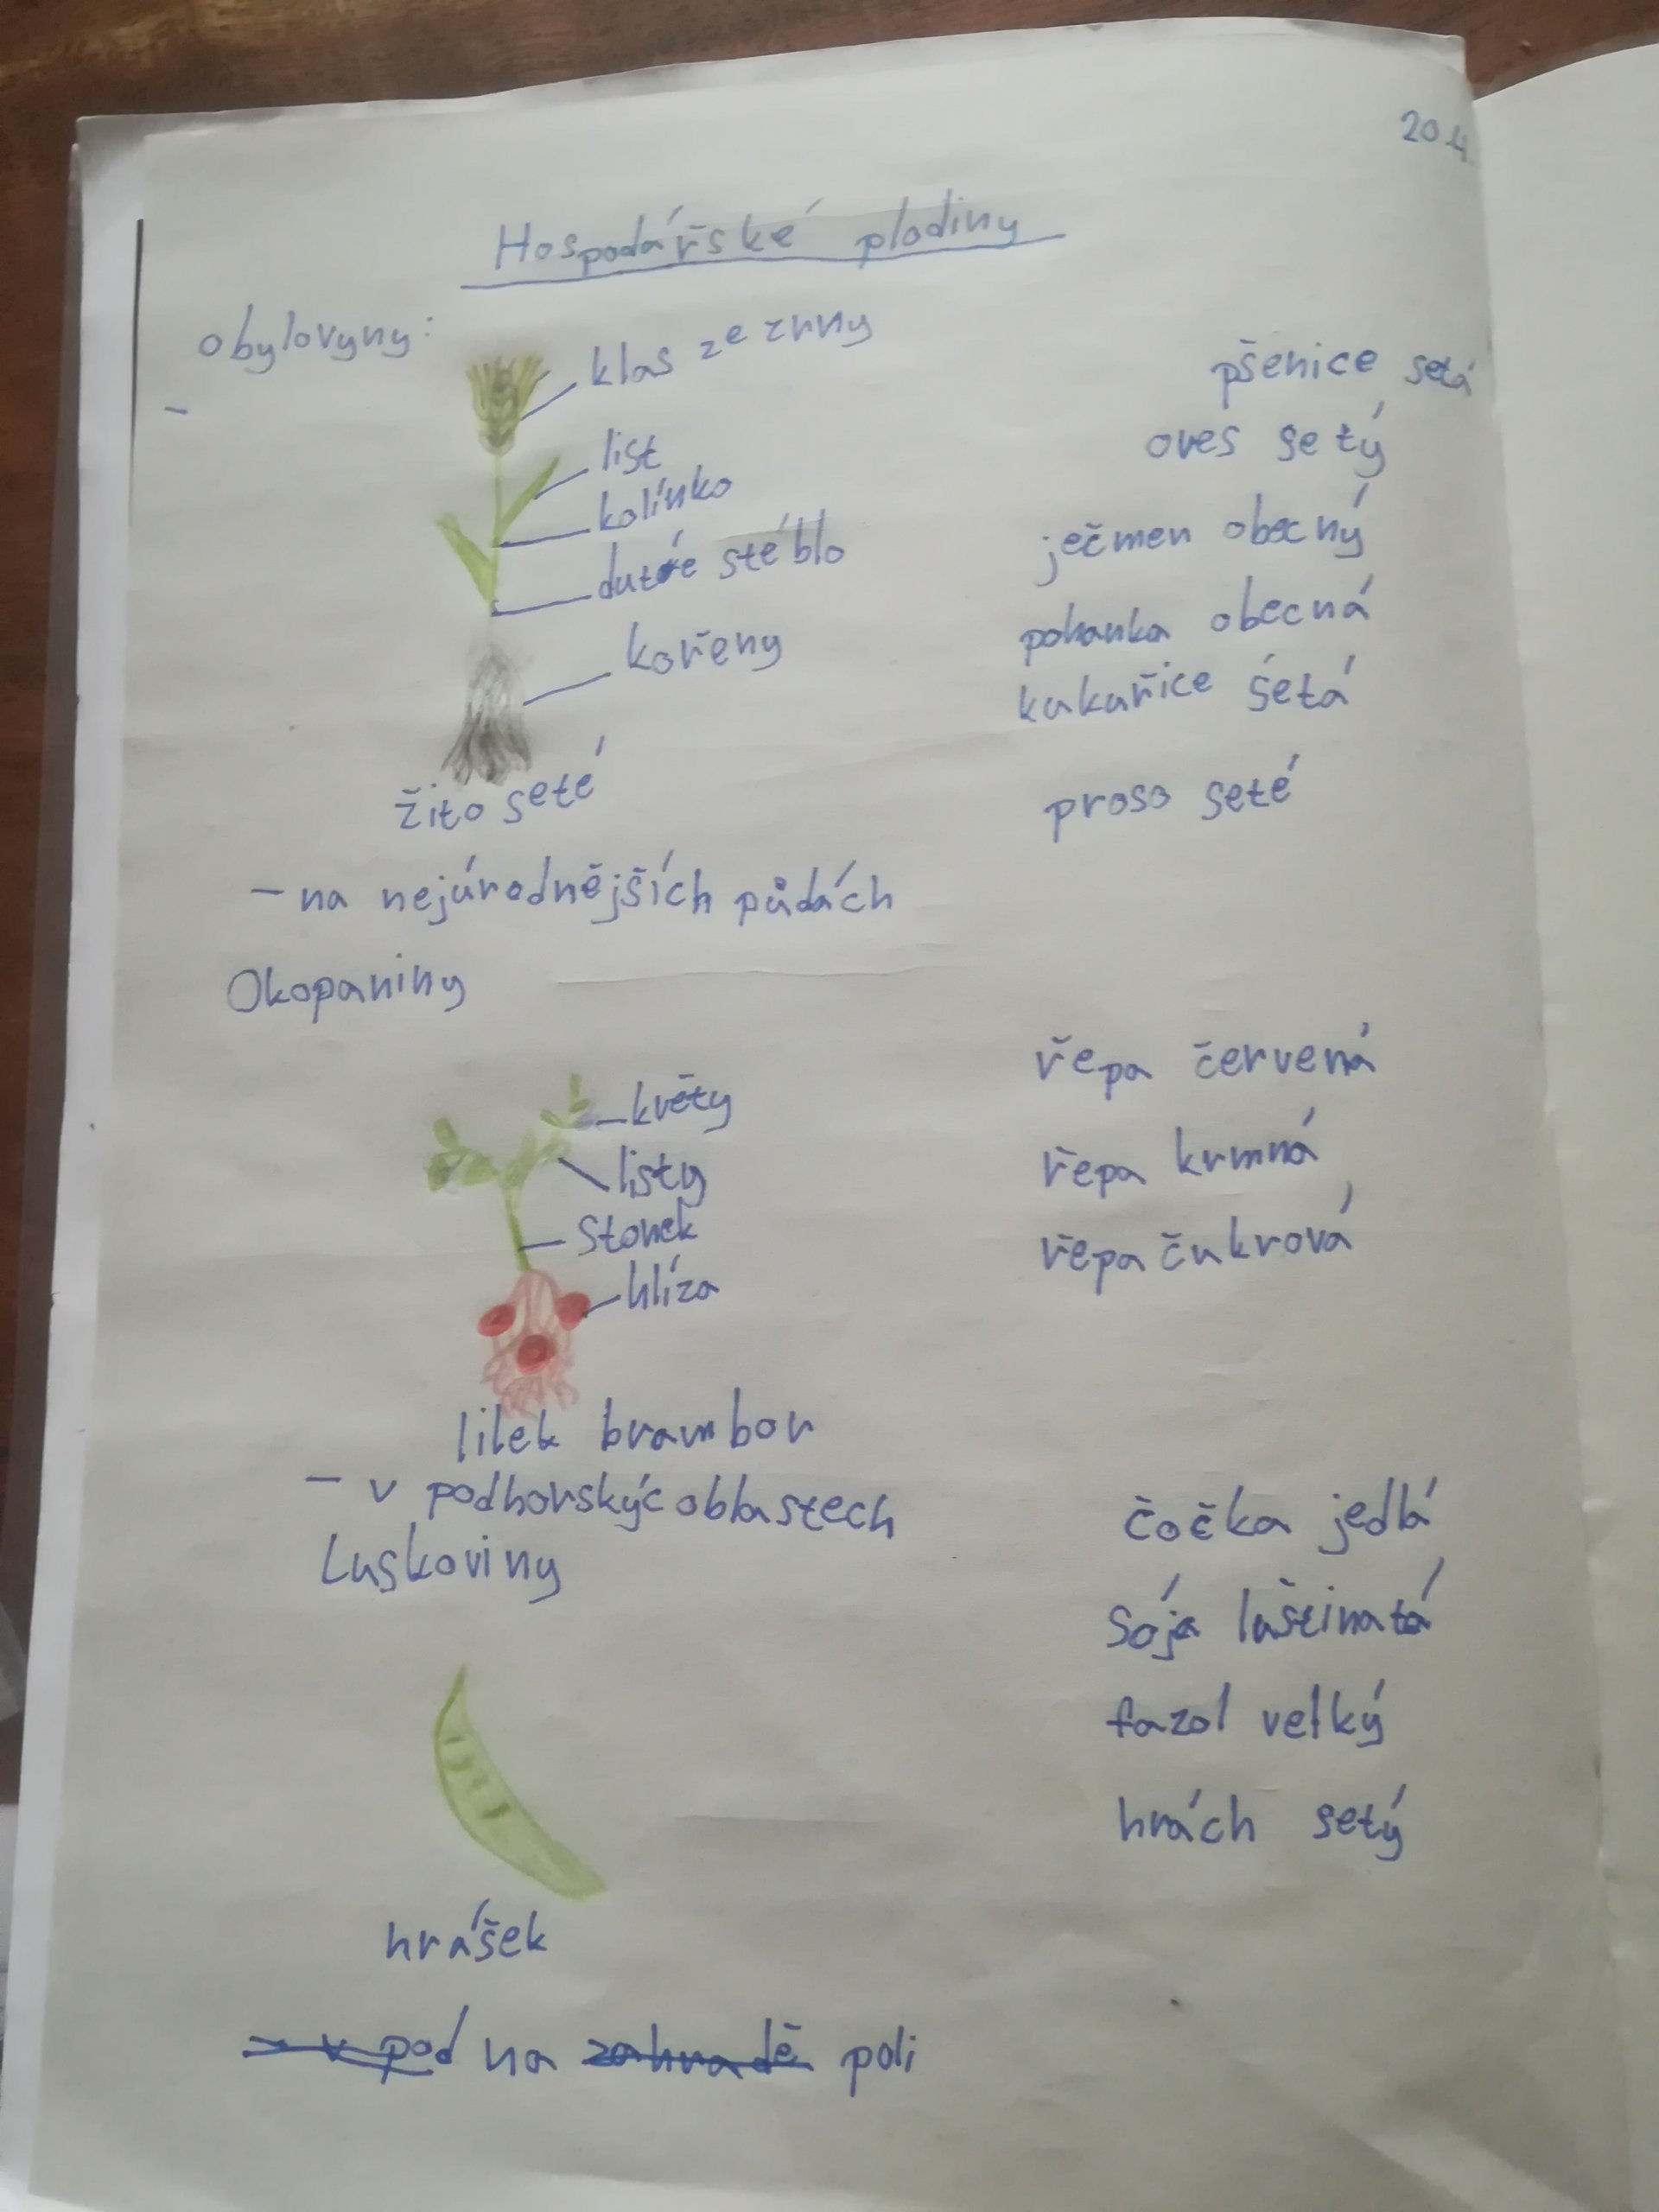 20.4.
Hospodářské plodiny
obylovyny:
-
klas ze zrny
list
kolínko
duté stéblo
kořeny
žito seté
pšenice setá
oves setý
ječmen obecný
pohanka obecná
kukuřice šetá
proso seté
- na nejúrodnějších půdách
Okopaniny
květy
listy
stonek
hlíza
lilek brambor
řepa červená
řepa krmná
řepa čukrová
- v podhorskýc oblastech
Luskoviny
čočka jedlá
sója luštinatá
fazol velký
hrách setý
hrášek
- v pod na zahradě poli